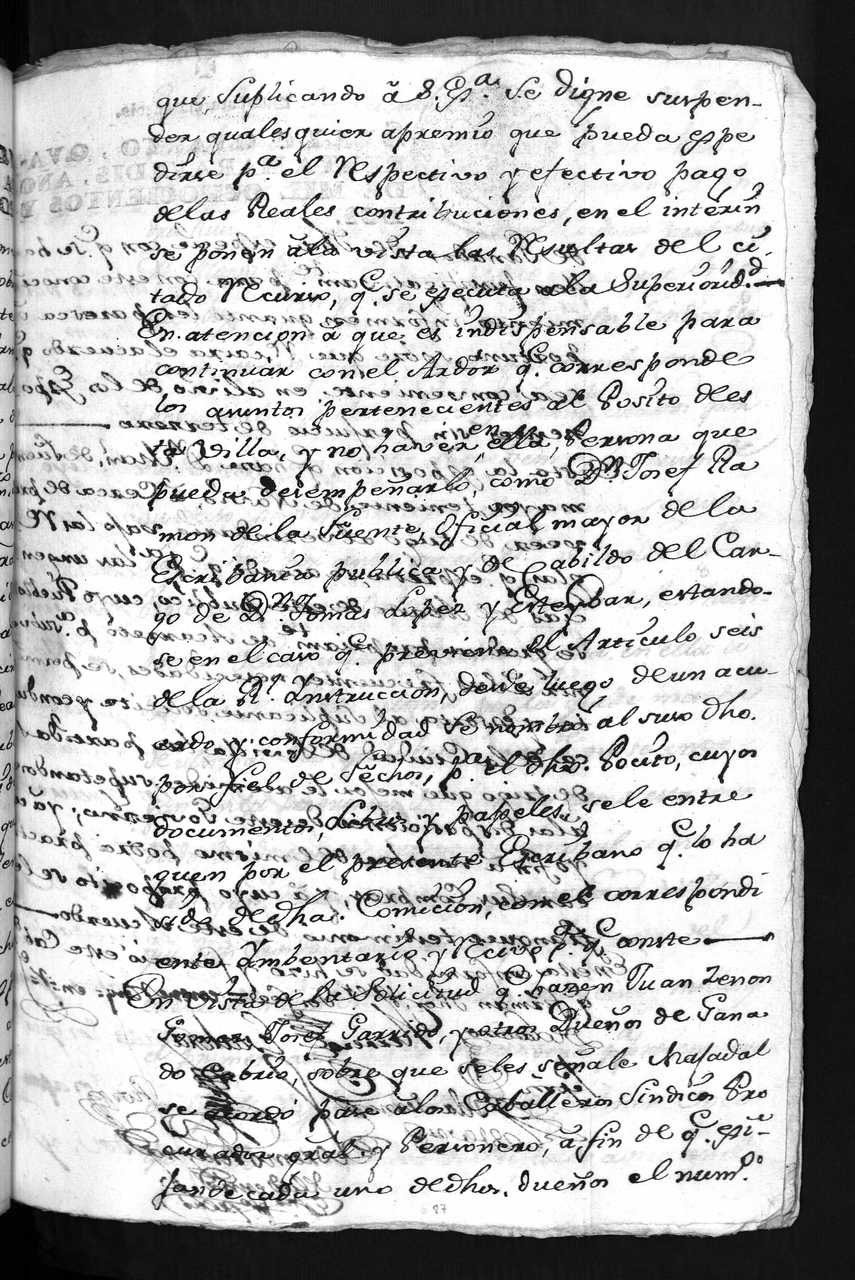 que, suplicando â S. Sª. Se digne suspen-
der qualesquier apremio que pueda espe
dirse pª. el Respectivo y efectivo pago
delas Reales contribuciones, en el interin
se ponen ala vista las Resultas del ci-
tado Recurso, q. se ejecuta ala Superiorid.d
En atencion â que es indispensable para
continuar con el Ardor q. corresponde
los asuntos pertenecientes al Posito deles
ta Villa, y no haver en ella, Persona que
pueda desempeñarlo, como Dn. Josef Ra
mon dela Fuente Oficial mayor dela
Escribania publica y de Cabildo del Car-
go de Dn. Tomas Lopez y Esteybar, estando-
se en el caso q. previene el Articulo seis
dela Rl. Instruccion, desde luego de un acu-
erdo y conformidad se nombra al suso dho.
por fiel de Fechos, pª. el dho. Posito, cuyos
documentos, Libros y papeles, sele entre
guen por el presente Escribano q. lo ha
sido de dha. Comicion, con el correspondi
ente Ymbentario y Recivo pª. q. conste
En vista dela Solicitud q. hacen Juan Zenon
Gomez, Josef Garrido, y otros Dueños de Gana
do Cabrio, sobre que seles señale Majadal
se acordó pase alos Caballeros Sindicos Pro
curador gral. y Personero, a fin de q.
de cada uno de dhos. dueños el numº.
87